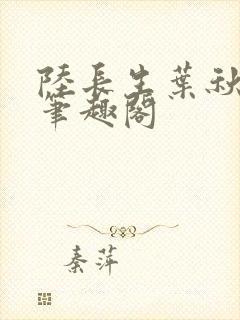 陸長生葉秋
筆趣閣
秦萍